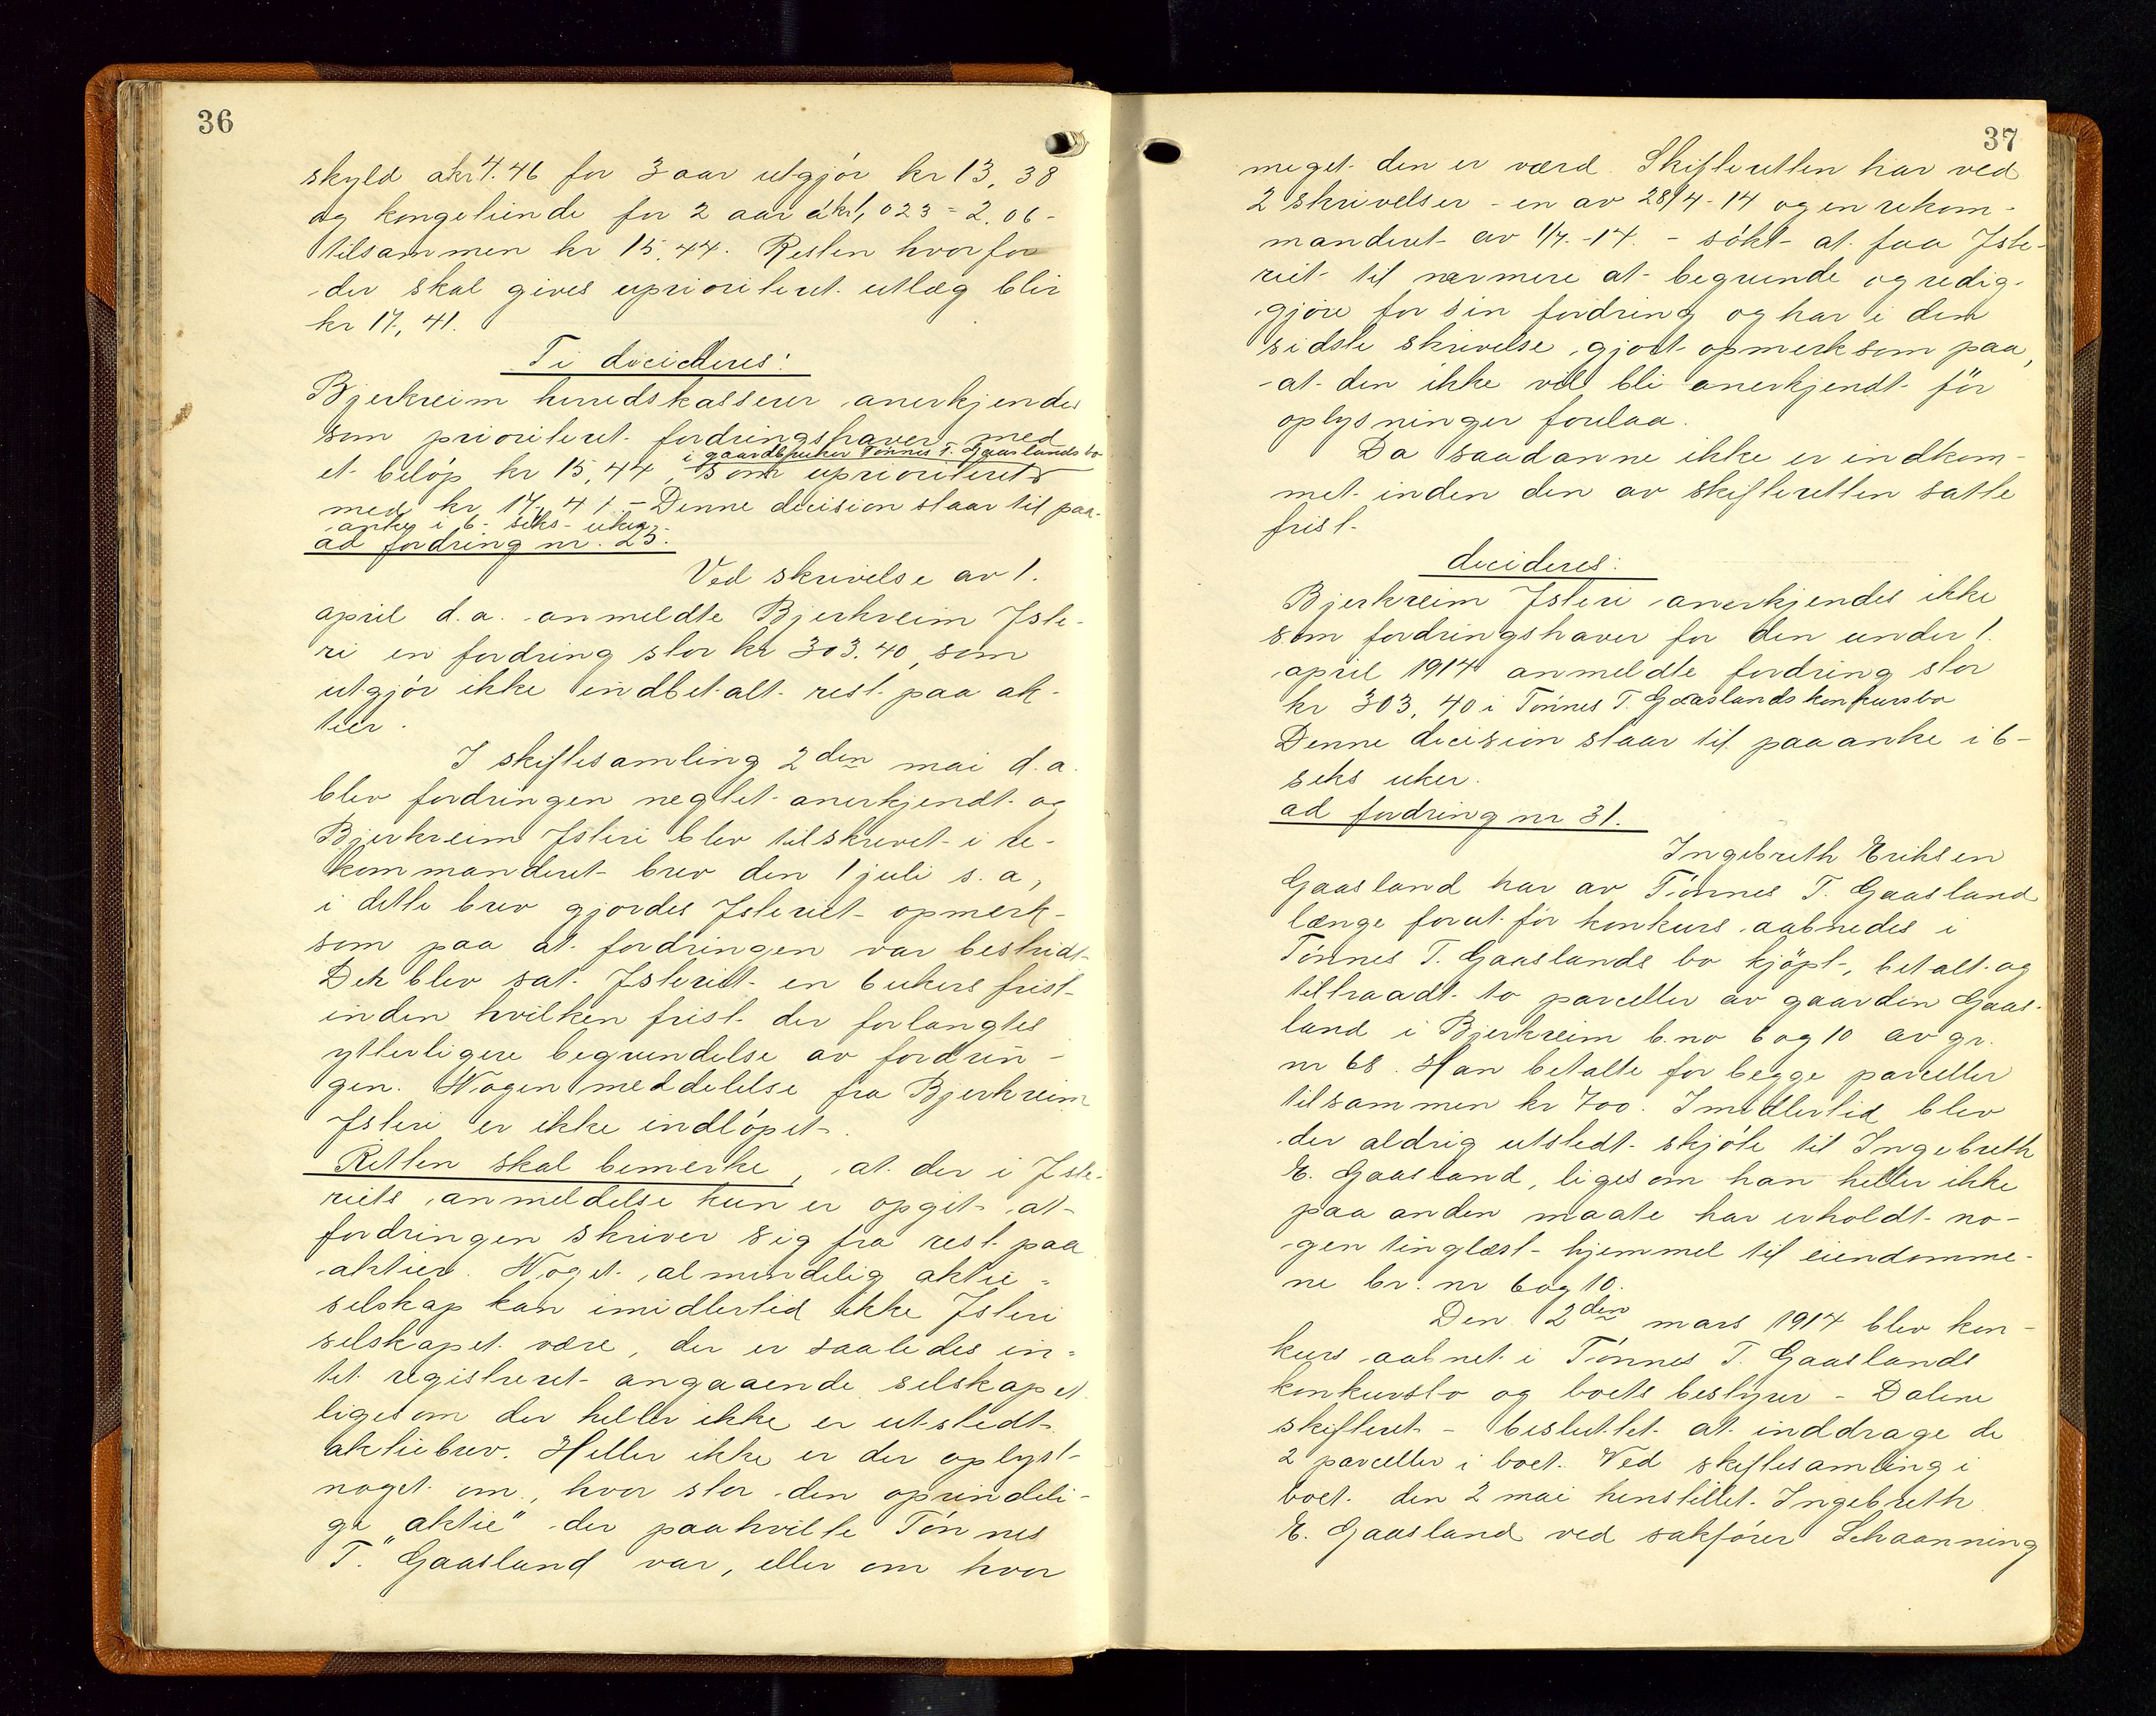 36
skyld à kr 4.46 for 3 aar utgjör kr 13,38
og kongetiende for 2 aar à kr 1,023 = 2.06 -
tilsammen kr 15,44. Resten hvorfor
der skal gives uprioriteret utlæg blir
kr 17,41.
Ti decideres:
Bjerkreim herredskasserer anerkjendes
som prioriteret fordringshaver med
i gaardbruker Tönnes T. Gaaslands bo
et belöp kr 15,44, som uprioriteret
med kr 17,41 - Denne decision staar til paa-
anke i 6 - seks - uker.
ad fordring nr. 23.
Ved skrivelse av 1.
april d.a. anmeldte Bjerkreim Yste-
ri en fordring stor kr 303.40, som
utgjör ikke indbetalt rest paa ak-
tier.
I skiftesamling 2den mai d.a.
blev fordringen negtet anerkjendt og
Bjerkreim Ysteri blev tilskrevet i re-
kommanderet brev den 1 juli s.a,
i dette brev gjordes Ysteriet opmerk-
som paa at fordringen var bestridt
Der blev sat Ysteriet en 6 ukers frist
inden hvilken frist der forlangtes
ytterligere begrundelse av fordrin-
gen. Nogen meddelelse fra Bjerkreim
Ysteri er ikke indlöpet.
Retten skal bemerke, at der i Yste-
riets anmeldelse kun er opgit at
fordringen skriver sig fra rest paa
aktier. Noget almindelig aktie-
selskap kan imidlertid ikke Ysteri
selskapet være, der er saaledes in-
tet registreret angaaende selskapet
ligesom der heller ikke er utstedt
aktiebrev. Heller ikke er der oplyst
noget om, hvor stor den oprindeli-
ge "aktie" der paahvilte Tönnes
T. Gaasland var, eller om hvor
37
meget den er værd. Skifteretten har ved
2 skrivelser - en av 28/4-14 og en rekom-
manderet av 1/7-14. - sökt at faa Yste-
riet til nærmere at begrunde og redig-
gjöre for sin fordring og har i den
sidste skrivelse gjort opmerksom paa,
at den ikke vil bli anerkjendt för
oplysninger forelaa.
Da saadanne ikke er indkom-
met inden den av skifteretten satte
frist
decideres:
Bjerkreim Ysteri anerkjendes ikke
som fordringshaver for den under 1.
april 1914 anmeldte fordring stor
kr 303,40 i Tönnes T. Gaaslands konkursbo
Denne decision staar til paaanke i 6 -
seks uker.
ad fordring nr 31.
Ingebreth Eriksen
Gaasland har av Tönnes T. Gaasland
længe forut för konkurs aabnedes i
Tönnes T. Gaaslands bo kjöpt, betalt og
tiltraadt to parceller av gaarden Gaas-
land i Bjerkreim b.no 6 og 10 av gr.
nr 68. Han betalte for begge parceller
tilsammen kr 700. Imidlertid blev
der aldrig utstedt skjöte til Ingebreth
E. Gaasland, ligesom han heller ikke
paa anden maate har erholdt no-
gen tinglæst hjemmel til eiendomme-
ne br. nr 6 og 10.
Den 2den mars 1914 blev kon-
kurs aabnet i Tönnes T. Gaaslands
konkursbo og boets bestyrer - Dalene
skifteret - besluttet at inddrage de
2 parceller i boet. Ved skiftesamling i
boet den 2 mai henstillet Ingebreth
E. Gaasland ved sakförer Schaanning